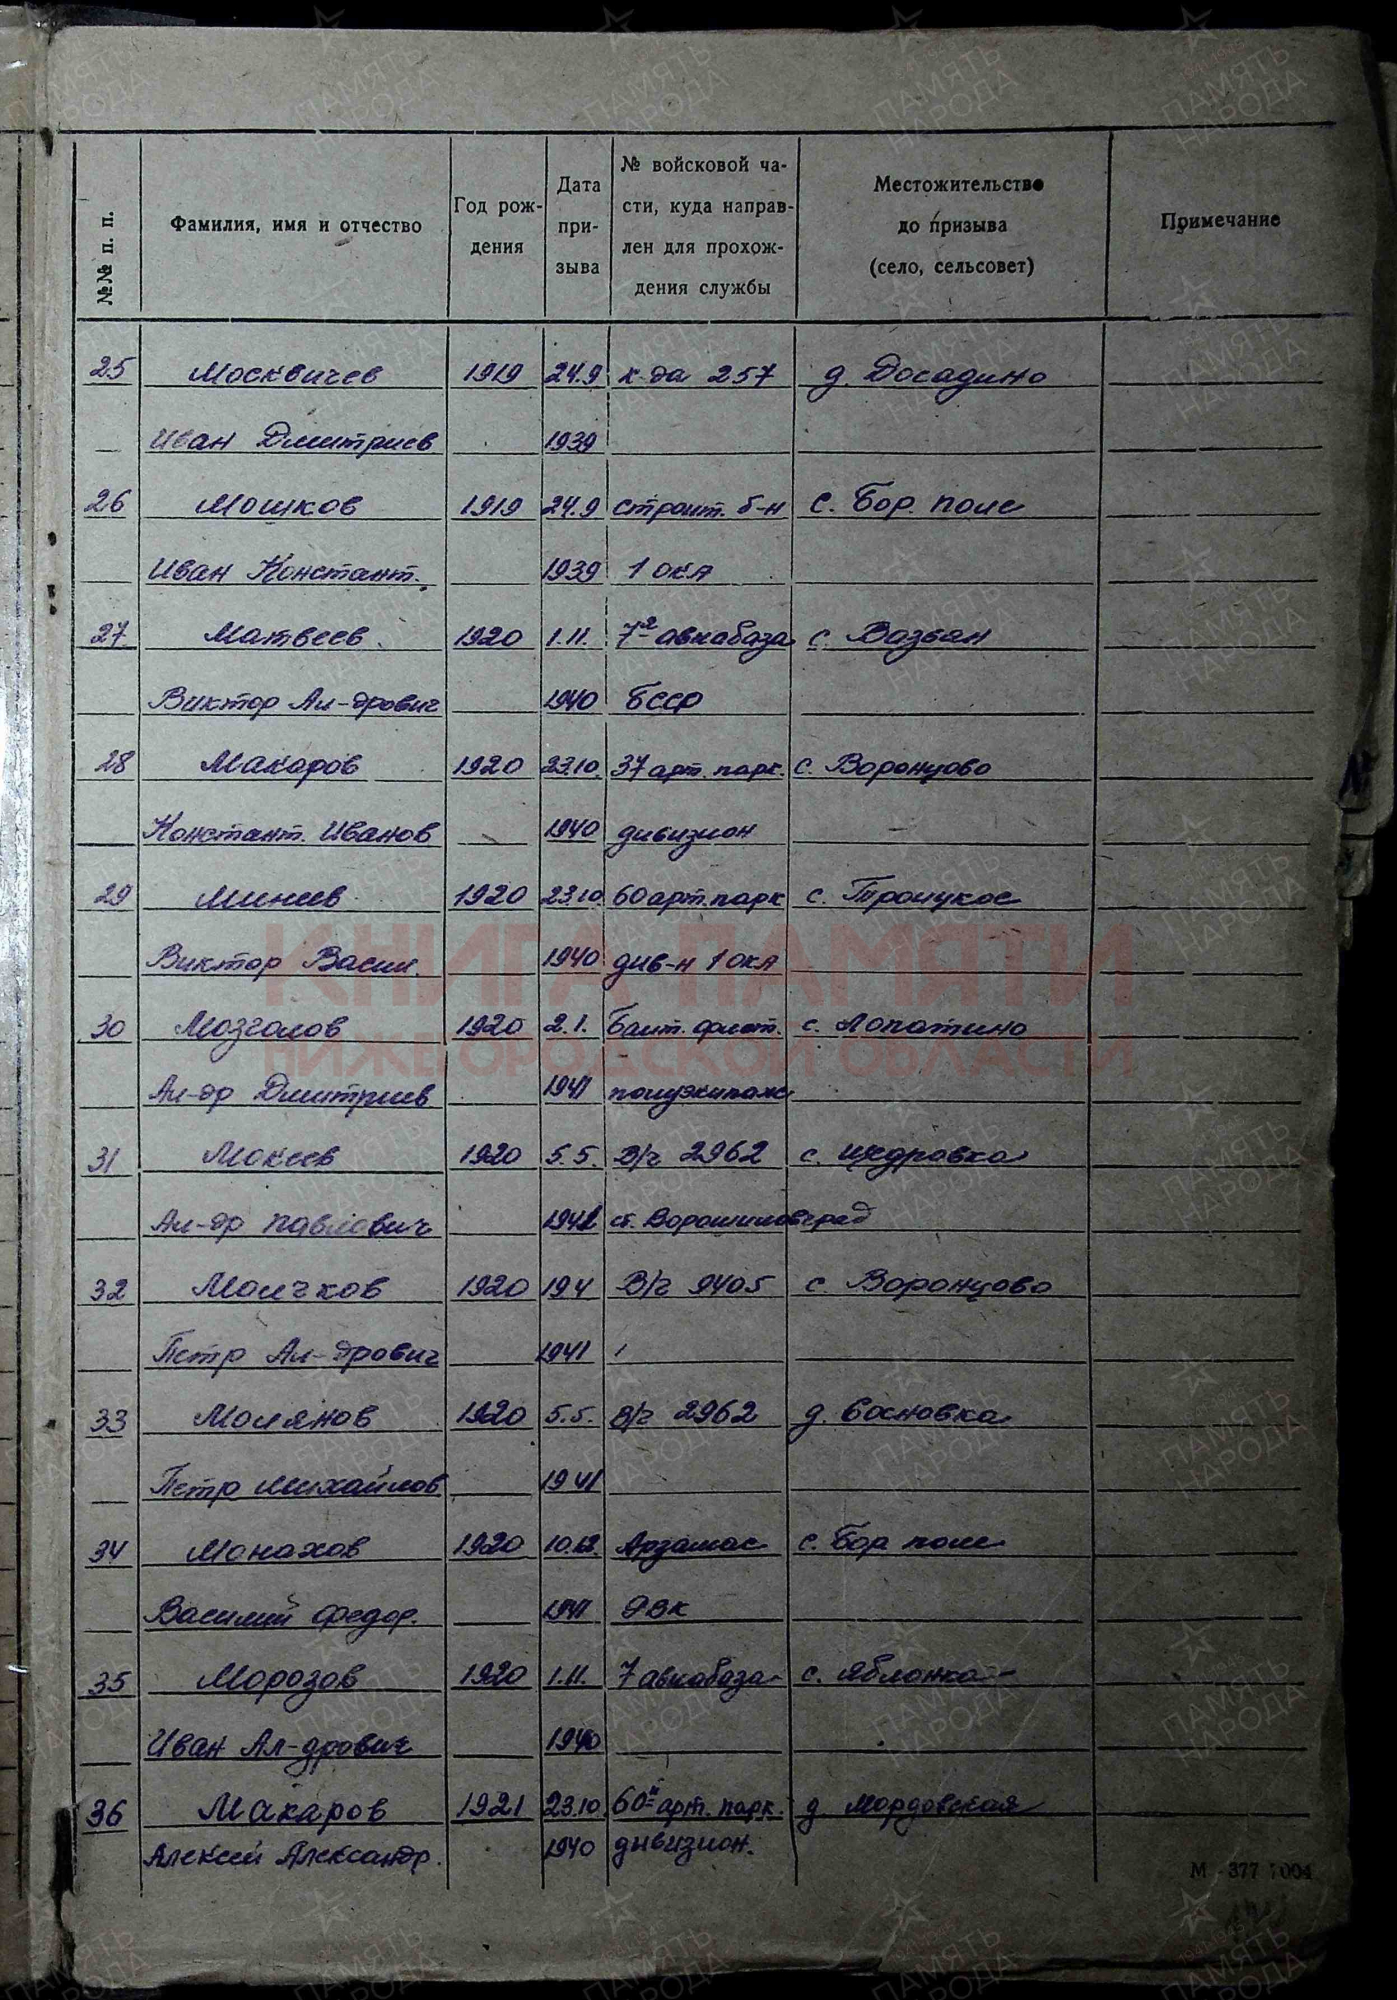 №№ п. п.
Фамилия, имя и отчество
Год рож-
дения
Дата
при-
зыва
№ войсковой ча-
сти, куда направ-
лен для прохож-
дения службы
Местожительство
до призыва
(село, сельсовет)
Примечание
25 Москвичев 1919 24.9 к-да 257 д. Досадино
Иван Дмитриев 1939
26 Мошков 1919 24.9 строит. б-н с. Бор. поле
Иван Констант. 1939 1 ОКА
27 Матвеев 1920 1.11. 7я авиабаза с. Вазьян
Виктор Ал-дрович 1940 БССР
28 Макаров 1920 23.10. 37 арт. парк. с. Воронцово
Констант. Иванов 1940 дивизион
29 Минеев 1920 23.10 60 арт. парк с. Троицкое
Виктор Васил. 1940 див-н 1 ОКА
30 Мозголов 1920 2.1. Балт. флот. с. Лопатино
Ал-др Дмитриев 1941 полуэкипаж
31 Мокеев 1920 5.5. В/ч 2962 с. Щедровка
Ал-др Павлович 1941 ст. Ворошиловград
32 Молчков 1920 19.4 В/ч 9405 с. Воронцово
Петр Ал-дрович 1941
33 Молянов 1920 5.5. В/ч 2962 д. Сосновка
Петр Михайлов 1941
34 Монахов 1920 10.12. Арзамас с. Бор. поле
Василий Федор. 1941 РВК
35 Морозов 1920 1.11. 7 авиабаза с. Яблонка
Иван Ал-дрович 1940
36 Макаров 1921 23.10. 60й арт. парк. д Мордовская
Алексей Александр. 1940 дивизион.
М-377 7004
КНИГА ПАМЯТИ
НИЖЕГОРОДСКОЙ ОБЛАСТИ
ПАМЯТЬ НАРОДА